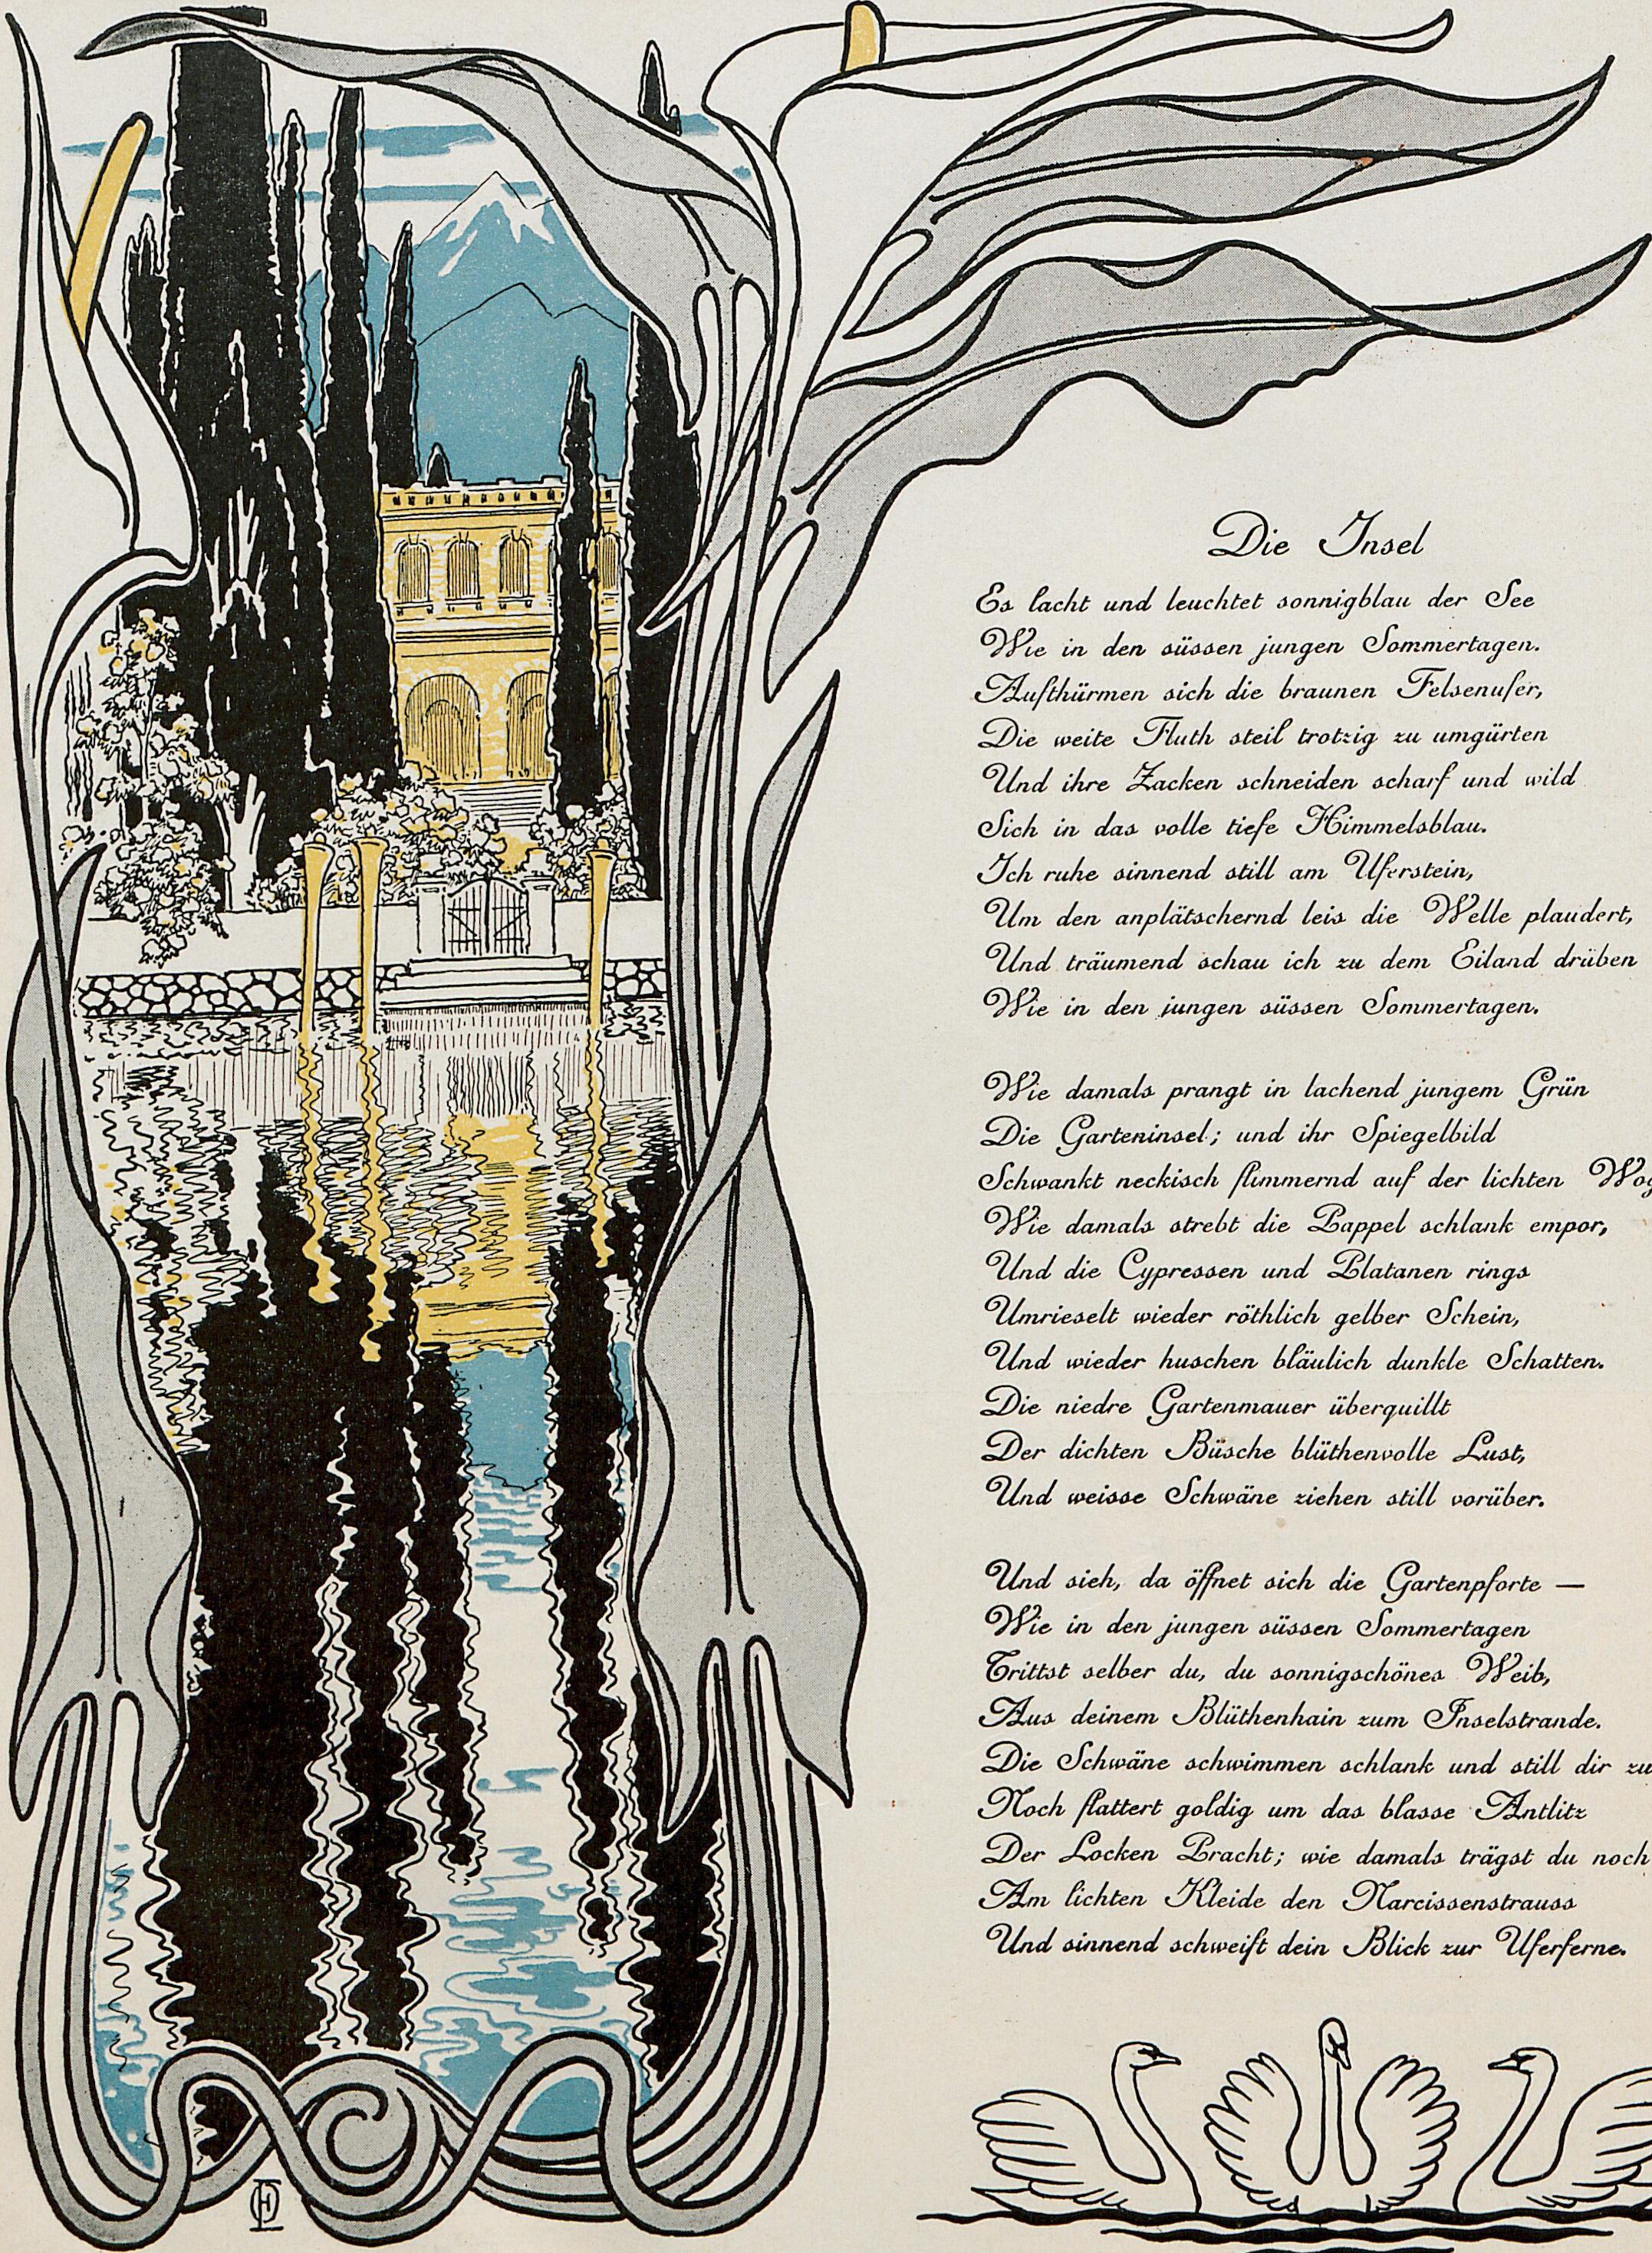 Die Insel
Es lacht und leuchtet sonnigblau der See
Wie in den süssen jungen Sommertagen.
Aufthürmen sich die braunen Felsenufer,
Die weite Fluth steil trotzig zu umgürten
Und ihre Zacken schneiden scharf und wild
Sich in das volle tiefe Himmelsblau.
Ich ruhe sinnend still am Uferstein,
Um den anplätschernd leis die Welle plaudert,
Und träumend schau ich zu dem Eiland drüben
Wie in den jungen süssen Sommertagen.
Wie damals prangt in lachend jungem Grün
Die Garteninsel; und ihr Spiegelbild
Schwankt neckisch flimmernd auf der lichten
Wie damals strebt die Pappel schlank empor,
Und die Cypressen und Platanen rings
Umrieselt wieder röthlich gelber Schein,
Und wieder huschen bläulich dunkle Schatten.
Die niedre Gartenmauer überquillt
Der dichten Büsche blüthenvolle Lust,
Und weisse Schwäne ziehen still vorüber.
Und sieh, da öffnet sich die Gartenpforte —
Wie in den jungen süssen Sommertagen
Trittst selber du, du sonnigschönes Weib,
Aus deinem Blüthenhain zum Inselstrande.
Die Schwäne schwimmen schlank und still dir zu
Noch flattert goldig um das blasse Antlitz
Der Locken Pracht; wie damals trägst du noch
Am lichten Kleide den Narcissenstrauss
Und sinnend schweift dein Blick zur Uferferne.